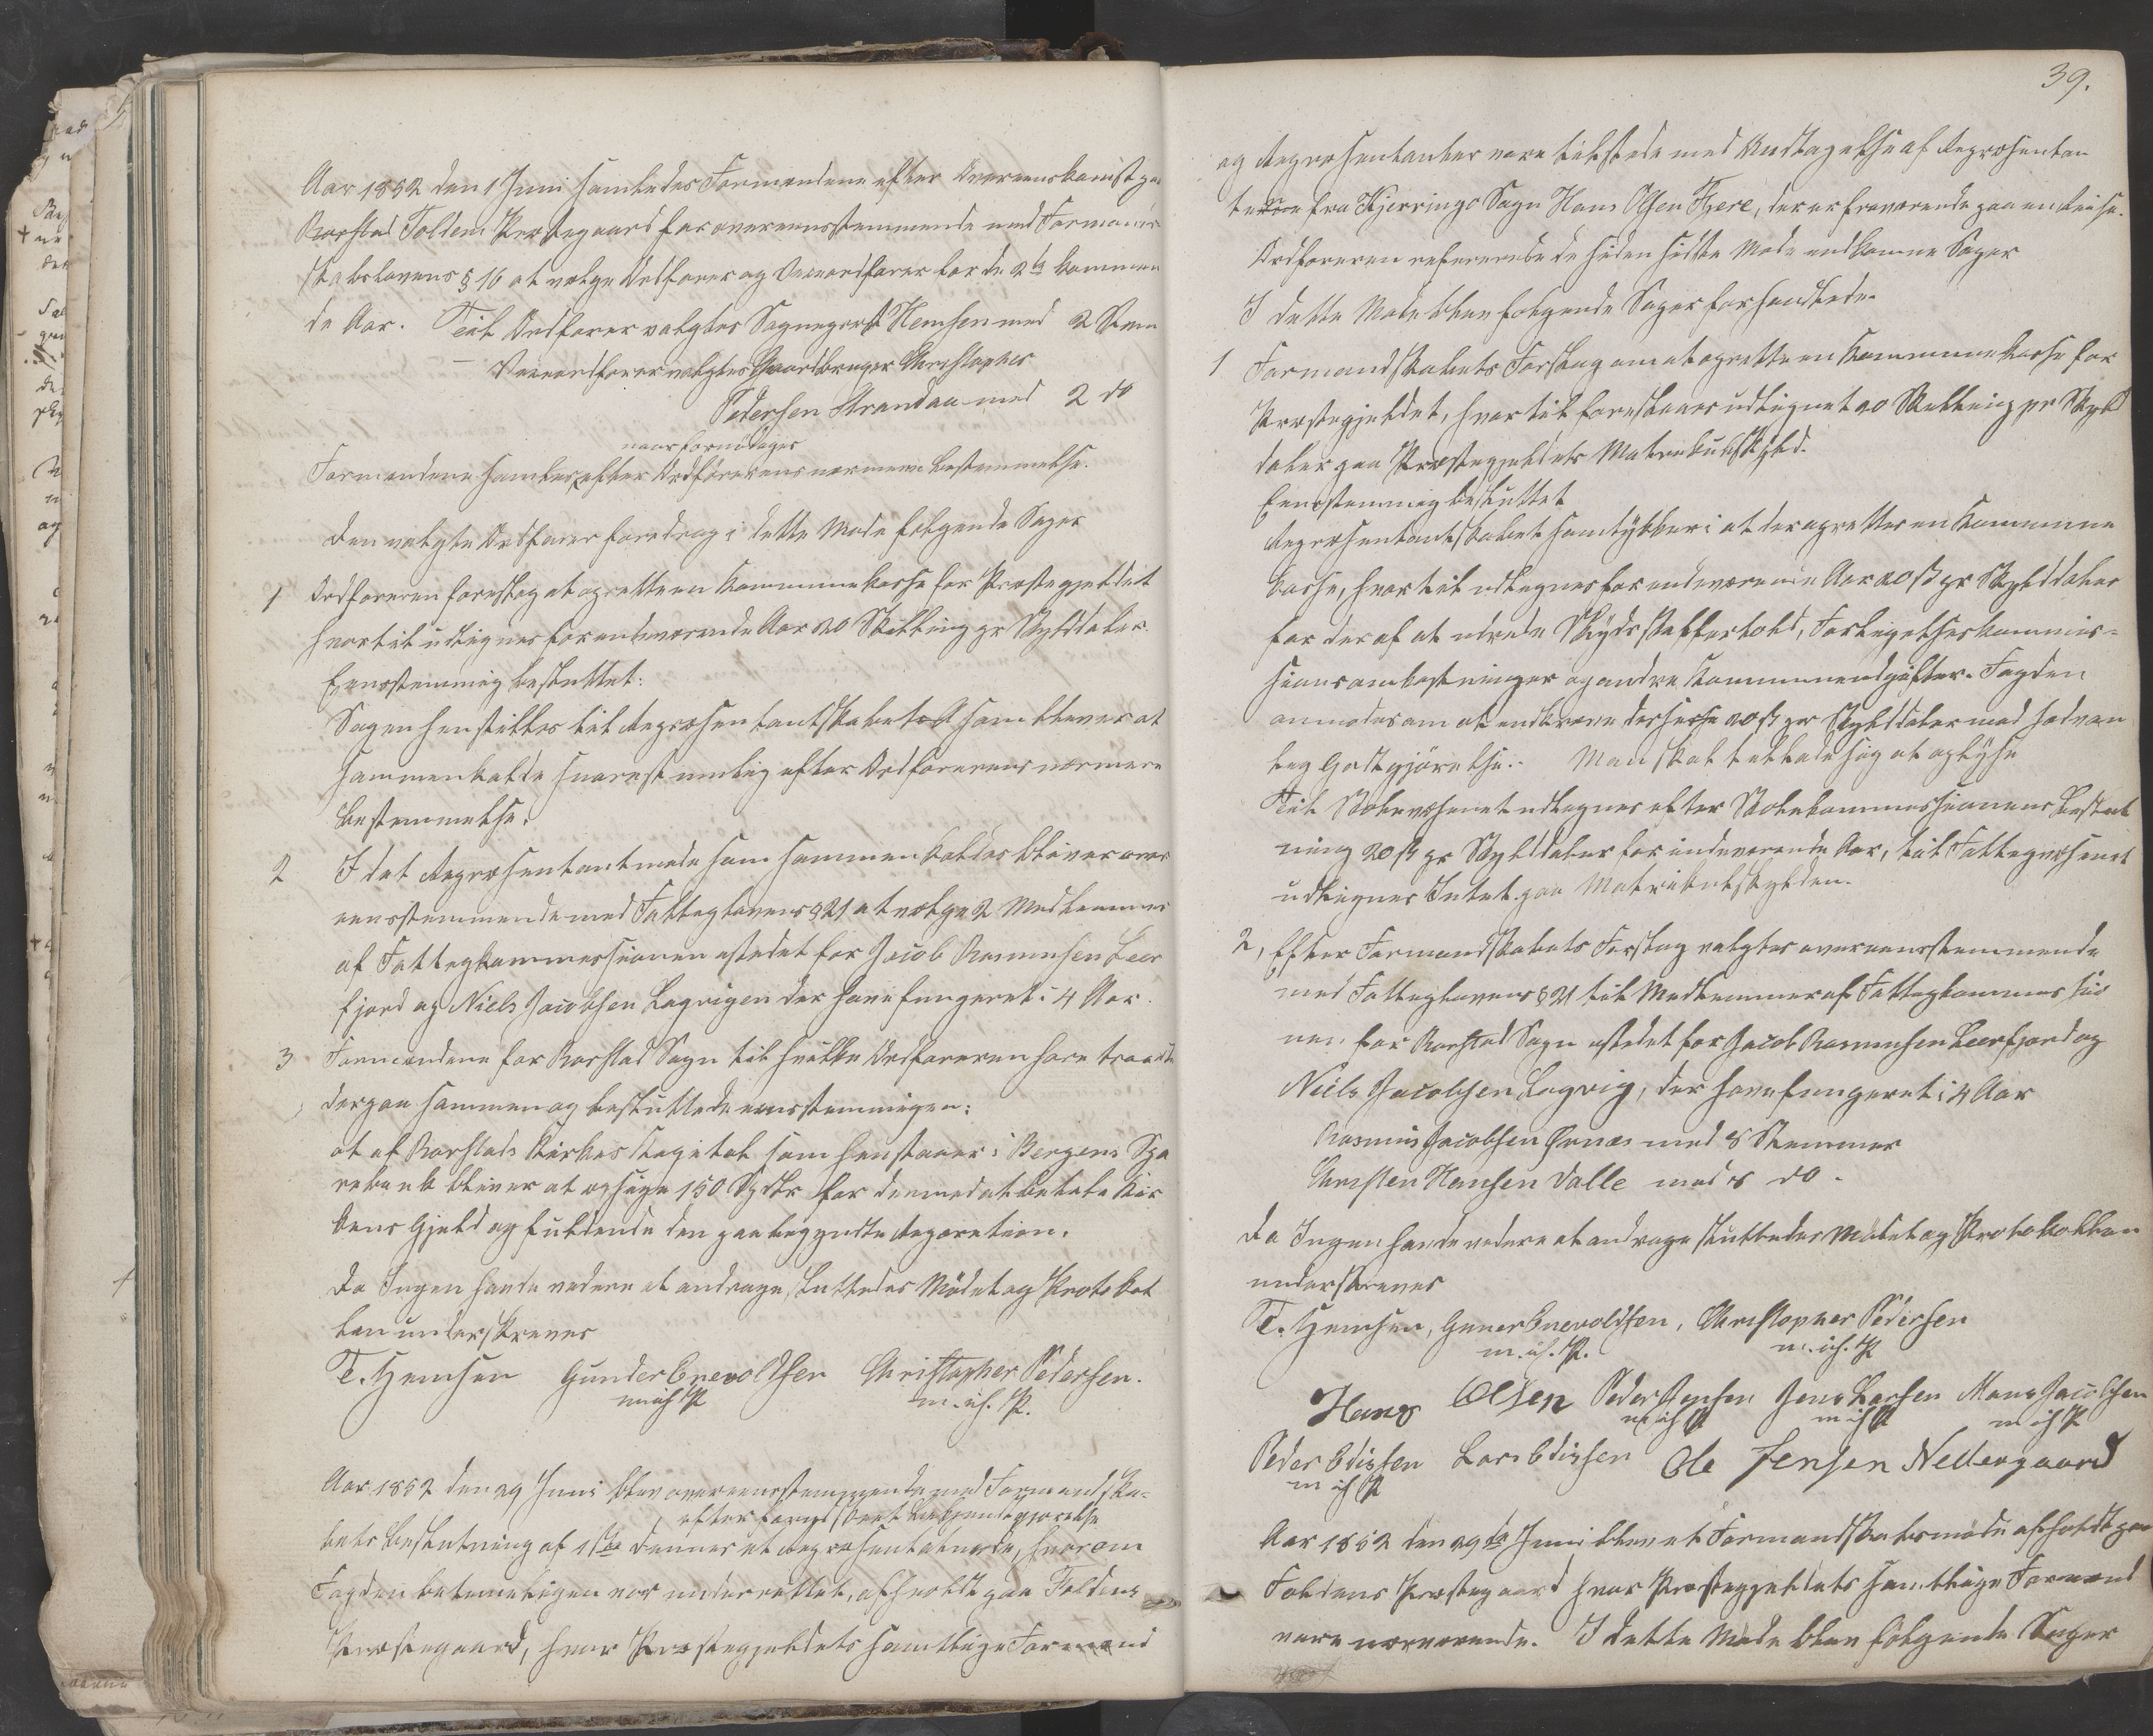 Aar 1852 den 1 Juni samledes Formændene efter Overeenskomst paa
Rorstad Foldens Præstegaard for overeensstemmende med Formand-
skabslovens § 16 at vælge Ordfører og Viceordfører for de 2de kommen
de Aar. Til Ordfører valgtes Sognepræst Hemsen med 2 Stem
— Viceordfører valgtes Gaardbruger Christopher
Pedersen Strandaa med 2 do
naar fornødiges
Formændene samles efter Ordførerens nærmere Bestemmelse.
Den valgte Ordfører foredrog i dette Møde følgende Sager
1 Ordføreren foreslog at oprette en Kommunekasse for Præstegjeldet
hvortil udlignes for indeværende Aar 20 Skilling pr Skylddaler.
Eensstemmig besluttet:
Sagen henstilles til Repræsentantskabet som bliver at
sammenkalde snarest mulig efter Ordførerens nærmere
Bestemmelse.
2 I det Repræsentantmøde som sammenkaldes bliver over
eensstemmende med Fattiglovens § 21 at vælge 2 Medlemmer
af Fattigkommissionen istedet for Jacob Rasmusen Leer
fjord og Niels Jacobsen Lagvigen der have fungeret i 4 Aar.
3 Formændene for Rorstad Sogn til hvilke Ordføreren hare traadte
derpaa sammen og besluttede eensstemmigen:
at af Rorstads Kirkes Kapital som henstaaer i Bergens Spa
rebank bliver at opsige 150 Spdlr for dermed at betale Kir
kens Gjeld og fuldende den paabegyndte Reparation.
Da Ingen havde videre at andrage, sluttedes Mødet og Protokol
len underskreves
T. Hemsen Gunder Enevoldsen Christopher Pedersen.
m ih P m. ih. P.
Aar 1852 den 29 Juni blev overeensstemmende med Formandska-
efter forudskeet Bekjendtgjørelse
bets Beslutning af 1ste dennes et Repræsentatmøde, hvorom
Fogden betimeligen var underrettet, afholdt paa Foldens
Præstegaard, hvor Præstegjeldets samtlige Formænd
39.
og Repræsentanter vare tilstede med Undtagelse af Repræsentan
ten fra Kjerringø Sogn Hans Olsen Fjere, der er fraværende paa en Reise.
Ordføreren refererede de siden sidste Møde indkomne Sager
I dette Møde blev følgende Sager forhandlede.
1 Formandskabets Forslag om at oprette en Kommunekasse for
Præstegjeldet, hvortil foreslaaes udlignet 20 Skilling pr Skyld
daler paa Præstegjeldets Matrikulskyld.
Eensstemmig besluttet
Repræsentantskabet samtykker i at der oprettes en Kommune
kasse, hvortil udlignes for indeværende Aar 20 ß pr Skylddaler
for deraf at udrede Skydsskafferhold, Forligelseskommis-
sionsomkostninger og andre Kommuneudgifter. Fogden
anmodes om at indkræve disse 20 ß pr Skylddaler mod sædvan
lig Godtgjørelse. Man skal tillade sig at oplyse
Til Skolevæsenet udlignes efter Skolekommissionens Beslut
ning 20 ß pr Skylddaler for indeværende Aar, til Fattigvæsenet
udlignes Intet paa Matrikulskylden.
2, Efter Formandskabets Forslag valgtes overeensstemmende
med Fattiglovens § 21 til Medlemmer af Fattigkommissio
nen for Rorstad Sogn istedet for Jacob Rasmusen Leerfjord og
Niels Jacobsen Lagvig, der have fungeret i 4 Aar
Rasmus Jacobsen Ørnæs med 8 Stemmer
Christen Hansen Valle med 8 do.
Da Ingen havde videre at andrage sluttedes Mødet og Protokollen
underskreves
T. Hemsen, Gunder Enevoldsen, Christopher Pedersen
m. ih. P. m. ih. P
Hans Olsen Peder Jensen Jens Larsen Mons Jacobsen
m ih P m ih P m ih P
Peder Edissen Lars Edissen Ole Jensen Nedregaard
m ih P
Aar 1852 den 29de Juni blev et Formandskabsmøde afholdt paa
Foldens Præstegaard hvor Præstegjeldets samtlige Formænd
vare nærværende. I dette Møde blev følgende Sager